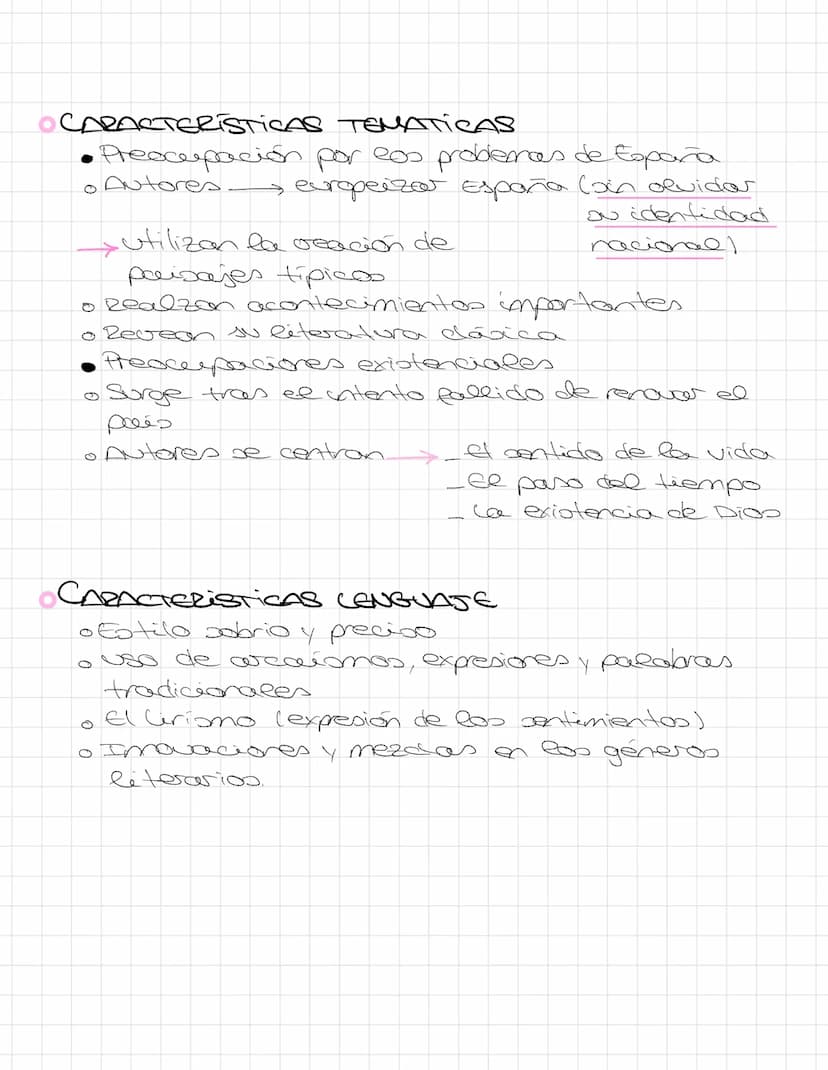 CARACTERÍSTICAS TEMATICAS
Preocupación por los problemas de España
Autores → europeizar España (sin olvidar
su identidad
→ utilizan la creación de nacional)
paisajes típicos
Realzan acontecimientos importantes
Recrean su literatura clásica
Preocupaciones existenciales
Surge tras el intento fallido de renovar el
país
Autores se centran → - El sentido de la vida
- El paso del tiempo
- La existencia de Dios
CARACTERíSTICAS LENGUAJE
Estilo sobrio y preciso
Uso de arcaísmos, expresiones y palabras
tradicionales
El lirismo (expresión de los sentimientos)
Innovaciones y mezclas en los géneros
literarios.